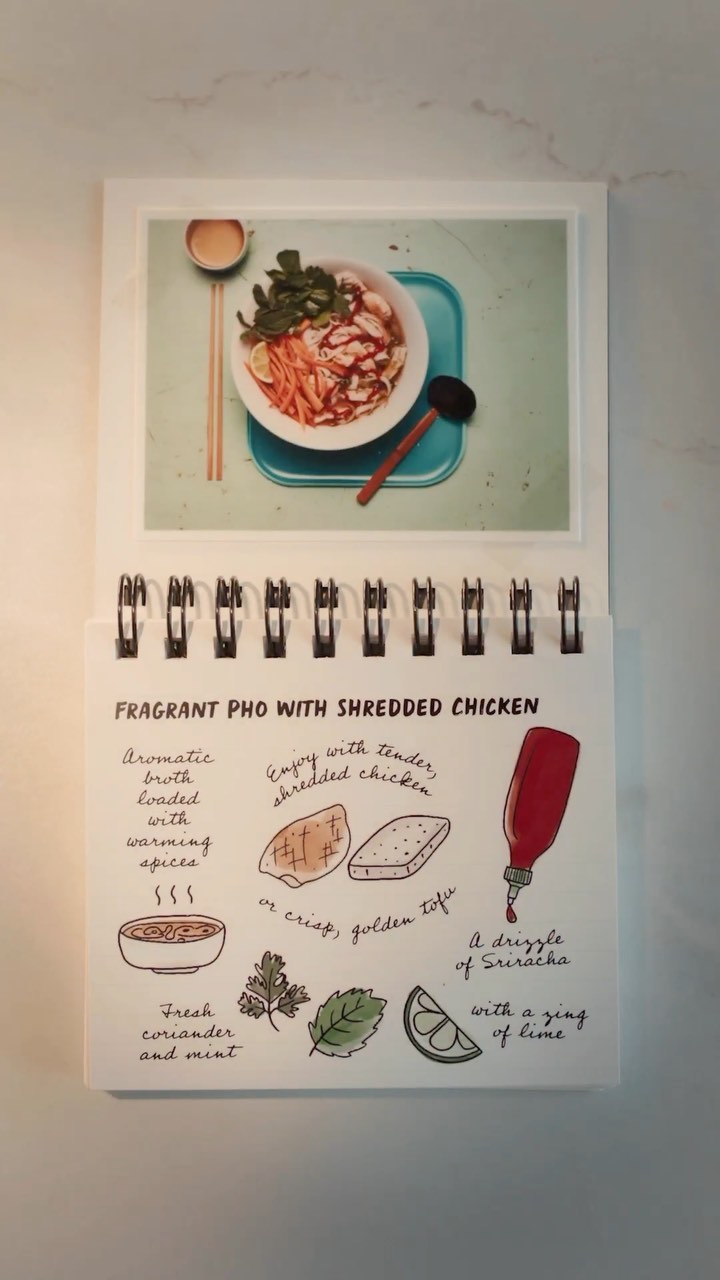 FRAGRANT PHO WITH SHREDDED CHICKEN
Aromatic
broth
loaded
with
warming
spices
Enjoy with tender,
shredded chicken
or crisp, golden tofu
A drizzle
of Sriracha
Fresh
coriander
and mint
with a zing
of lime